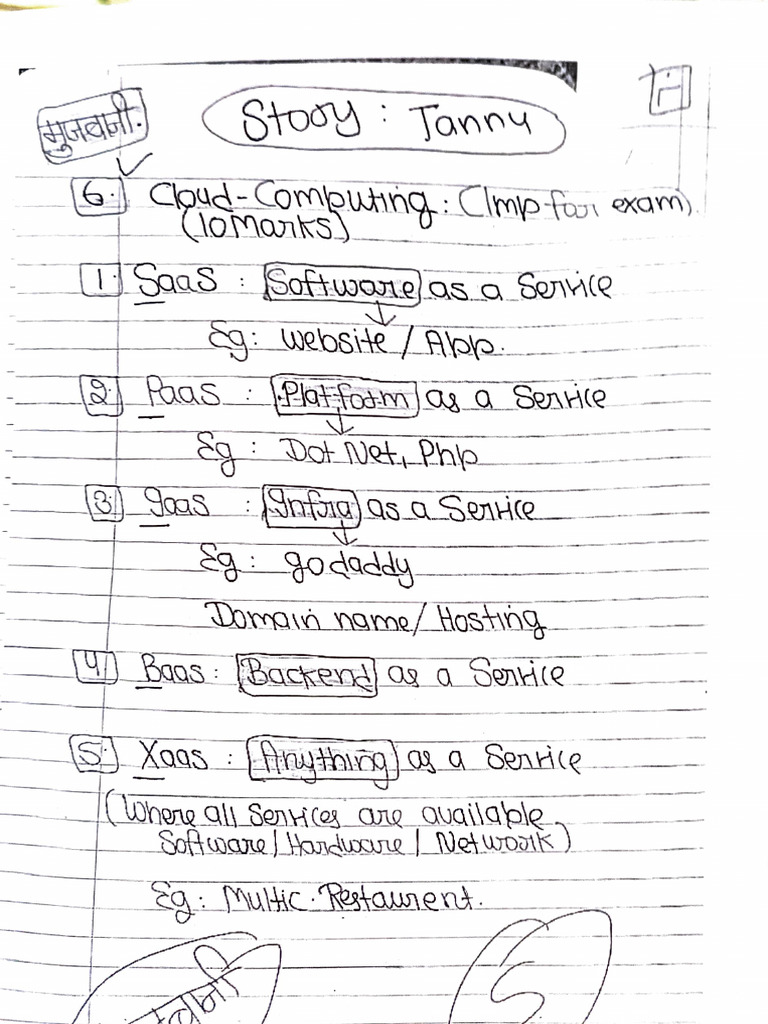 मुजबानी.
Story : Tannu
6. Cloud-Computing : (Imp for exam)
(10 Marks)
1. SaaS : Software as a Service
Eg: Website / App.
2. PaaS : Platform as a Service
Eg : Dot Net, Php
3. IaaS : Infra as a Service
Eg : godaddy
Domain name / Hosting
4. Baas : Backend as a Service
5. Xaas : Anything as a Service
(Where all Services are available
Software / Hardware / Network)
Eg : Multic. Restaurent.